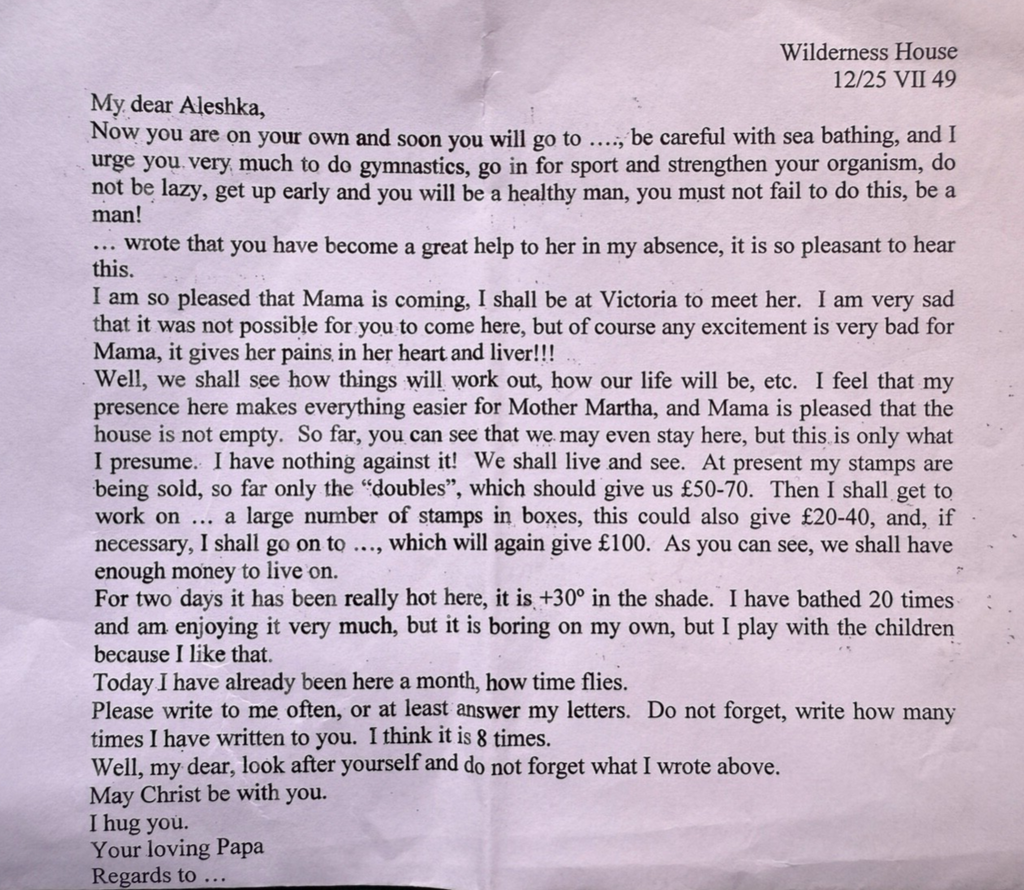 Wilderness House
12/25 VII 49
My dear Aleshka,
Now you are on your own and soon you will go to ...., be careful with sea bathing, and I
urge you very much to do gymnastics, go in for sport and strengthen your organism, do
not be lazy, get up early and you will be a healthy man, you must not fail to do this, be a
man!
... wrote that you have become a great help to her in my absence, it is so pleasant to hear
this.
I am so pleased that Mama is coming, I shall be at Victoria to meet her. I am very sad
that it was not possible for you to come here, but of course any excitement is very bad for
Mama, it gives her pains in her heart and liver!!!
Well, we shall see how things will work out, how our life will be, etc. I feel that my
presence here makes everything easier for Mother Martha, and Mama is pleased that the
house is not empty. So far, you can see that we may even stay here, but this is only what
I presume. I have nothing against it! We shall live and see. At present my stamps are
being sold, so far only the “doubles”, which should give us £50-70. Then I shall get to
work on ... a large number of stamps in boxes, this could also give £20-40, and, if
necessary, I shall go on to ..., which will again give £100. As you can see, we shall have
enough money to live on.
For two days it has been really hot here, it is +30º in the shade. I have bathed 20 times
and am enjoying it very much, but it is boring on my own, but I play with the children
because I like that.
Today I have already been here a month, how time flies.
Please write to me often, or at least answer my letters. Do not forget, write how many
times I have written to you. I think it is 8 times.
Well, my dear, look after yourself and do not forget what I wrote above.
May Christ be with you.
I hug you.
Your loving Papa
Regards to ...